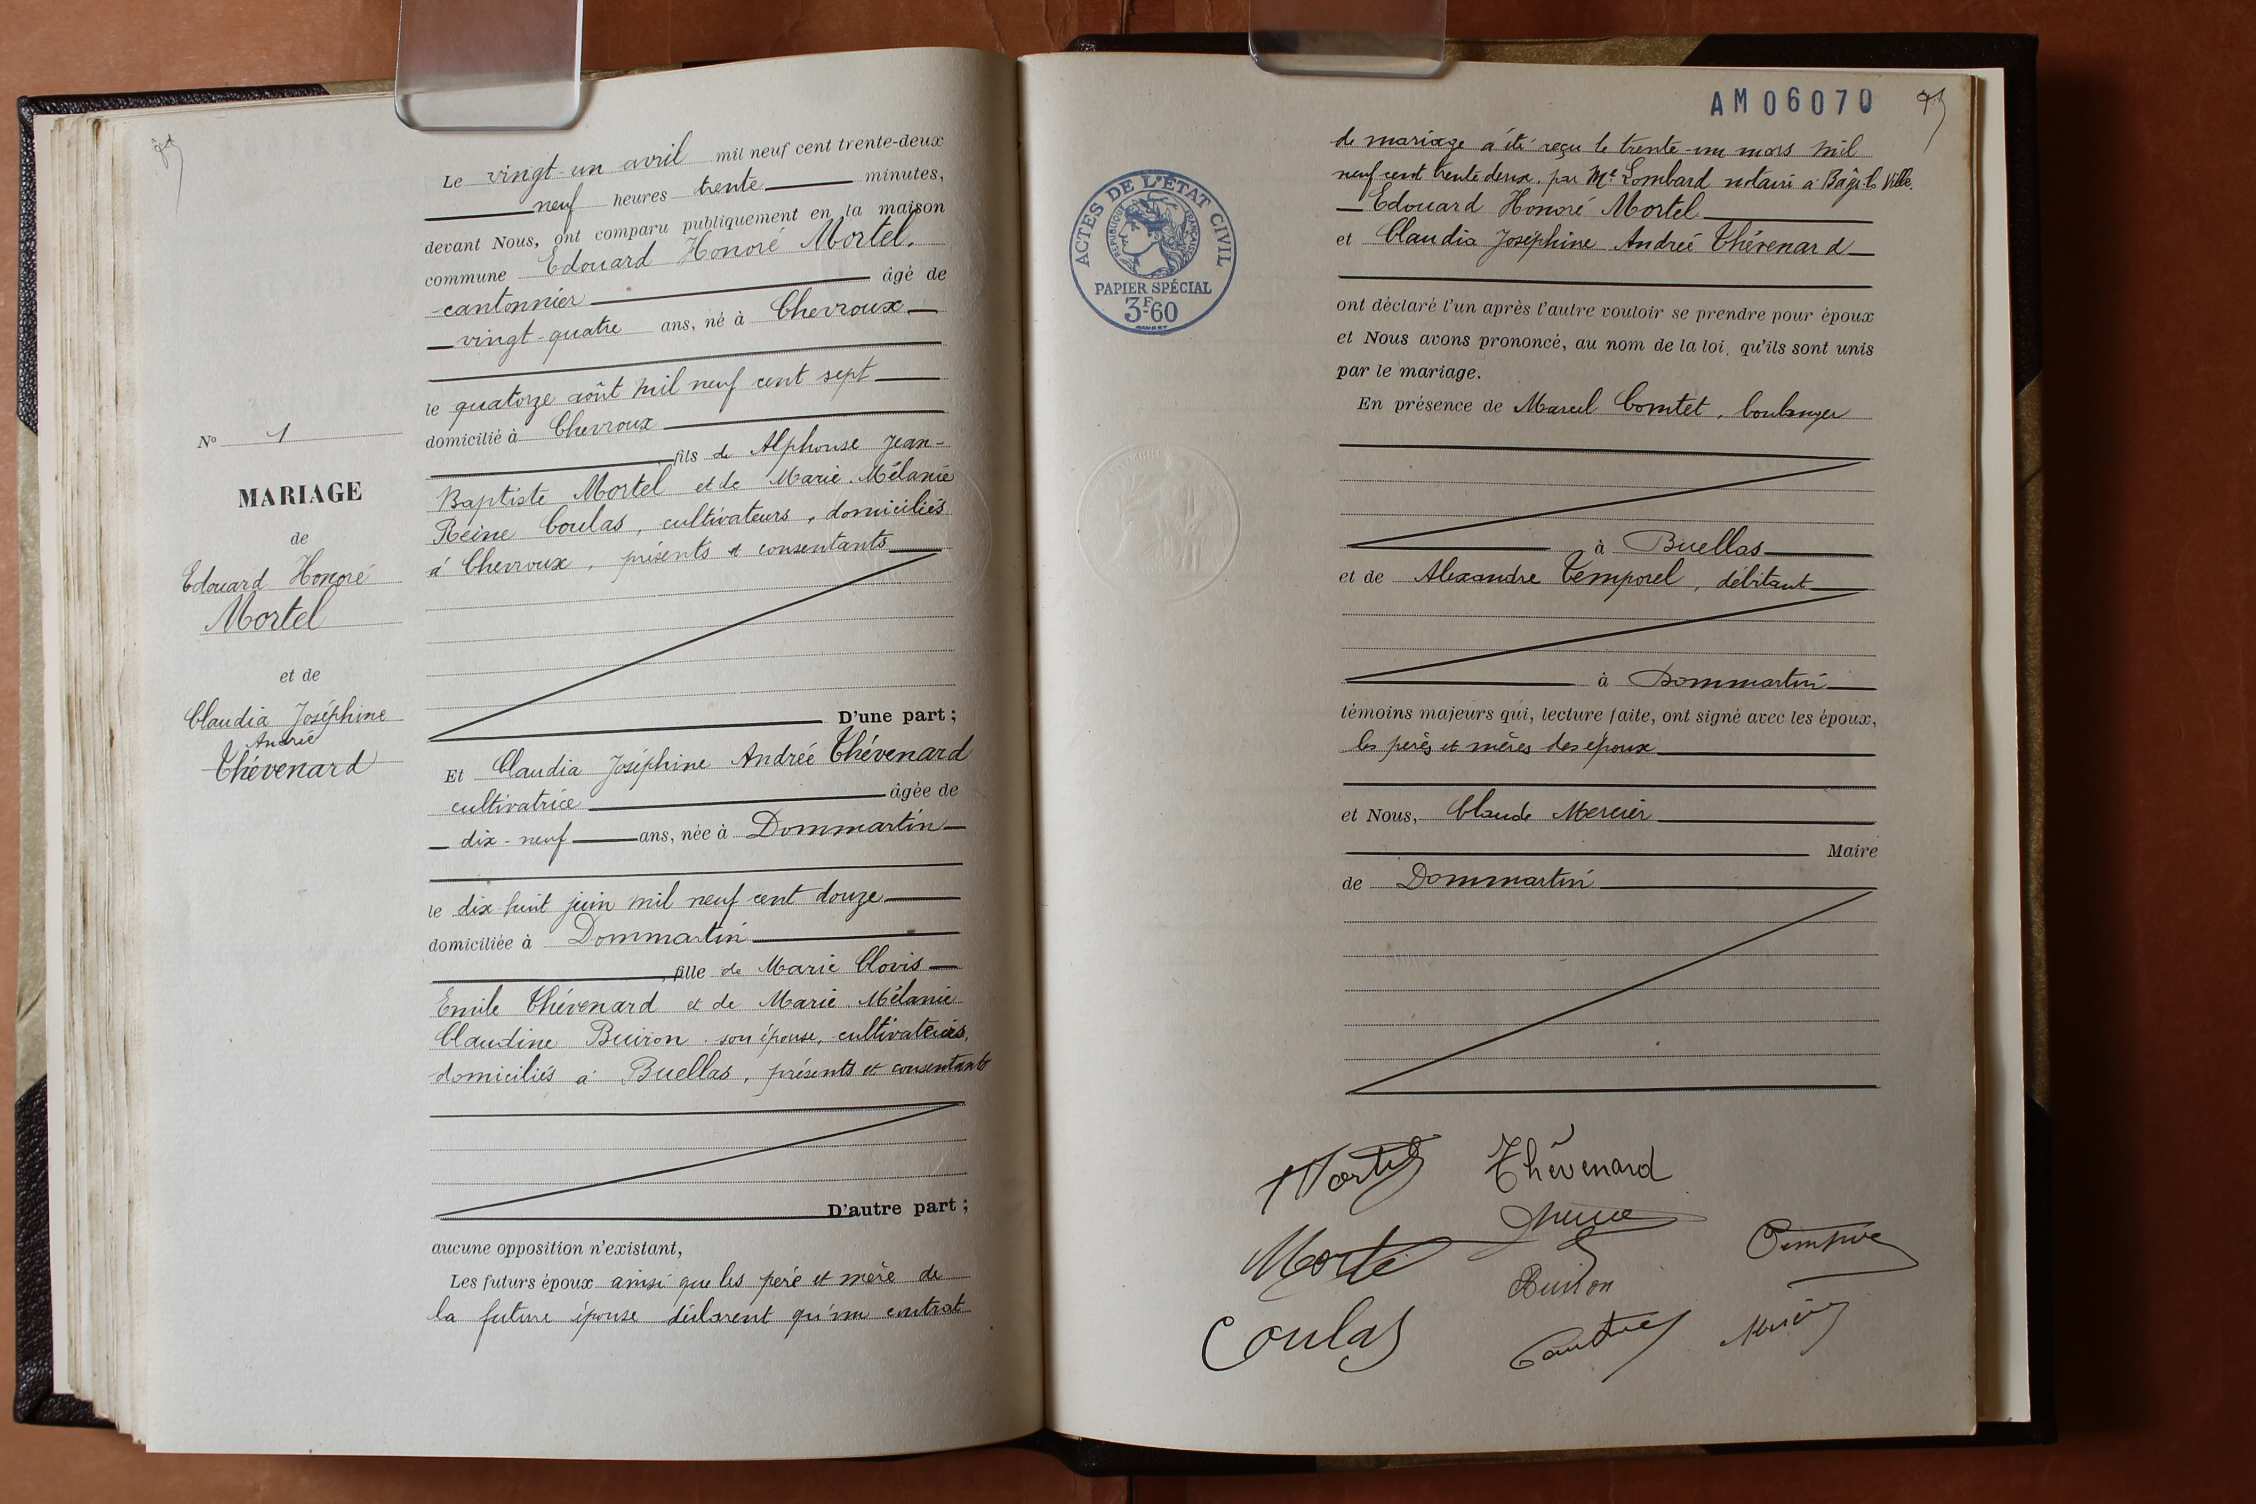 Le vingt-un avril mil neuf cent trente-deux
neuf heures trente minutes,
devant Nous, ont comparu publiquement en la maison
commune Edouard Honoré Mortel,
cantonnier âgé de
vingt-quatre ans, né à Chevroux
le quatorze août mil neuf cent sept
domicilié à Chevroux
fils de Alphonse Jean-
Baptiste Mortel et de Marie Mélanie
Reine Coulas, cultivateurs, domiciliés
à Chevroux, présents et consentants
D'une part ;
Et Claudia Joséphine Andrée Thévenard
cultivatrice âgée de
dix-neuf ans, née à Dommartin
le dix huit juin mil neuf cent douze
domiciliée à Dommartin
fille de Marie Clovis
Emile Thévenard et de Marie Mélanie
Claudine Buiron son épouse, cultivateurs,
domiciliés à Buellas, présents et consentants
D'autre part ;
aucune opposition n'existant,
Les futurs époux ainsi que les père et mère de
la future épouse déclarent qu'un contrat
No 1
MARIAGE
de
Edouard Honoré
Mortel
et de
Claudia Joséphine
Andrée
Thévenard
AM06070
de mariage a été reçu le trente-un mars mil
neuf cent trente deux, par Me Lombard notaire à Bâgé-la Ville.
Edouard Honoré Mortel
et Claudia Joséphine Andrée Thévenard
ont déclaré l'un après l'autre vouloir se prendre pour époux
et Nous avons prononcé, au nom de la loi, qu'ils sont unis
par le mariage.
En présence de Marcel Comtet, boulanger
à Buellas
et de Alexandre Temporel, débitant
à Dommartin
témoins majeurs qui, lecture faite, ont signé avec les époux,
les pères et mères des époux
et Nous, Claude Mercier
Maire
de Dommartin
ACTES DE L'ÉTAT CIVIL
RÉPUBLIQUE FRANÇAISE
PAPIER SPÉCIAL
3F60
Mortel Thévenard
Buiron
Coulas